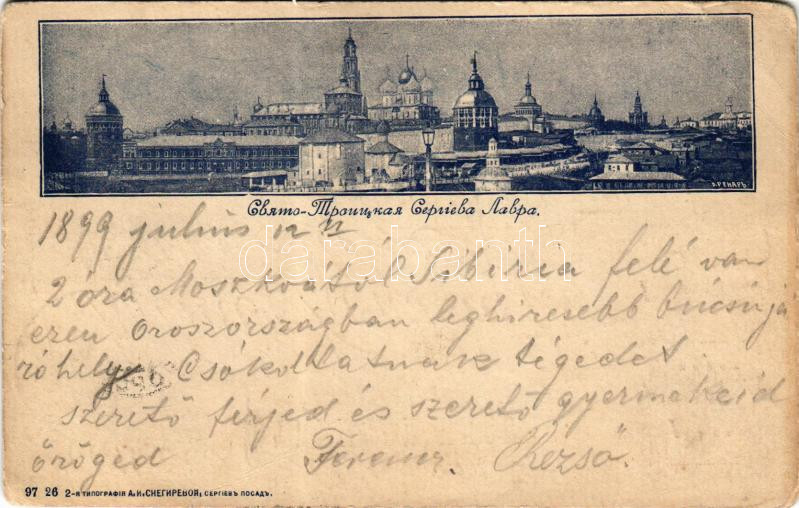 Э.РЕНАРЪ
Свято-Троицкая Сергіева Лавра.
1899 július 12
2 óra Moszkvától Sibiria felé van
ezen Oroszországban leghiresebb búcsújá
róhely Csókoltatnak tégedet
szerető férjed és szerető gyermekeid
örögéd Ferencz. Rezső.
darabanth
97 26 2-я ТИПОГРАФІЯ А.И.СНЕГИРЕВОЙ, СЕРГІЕВЪ ПОСАДЪ.